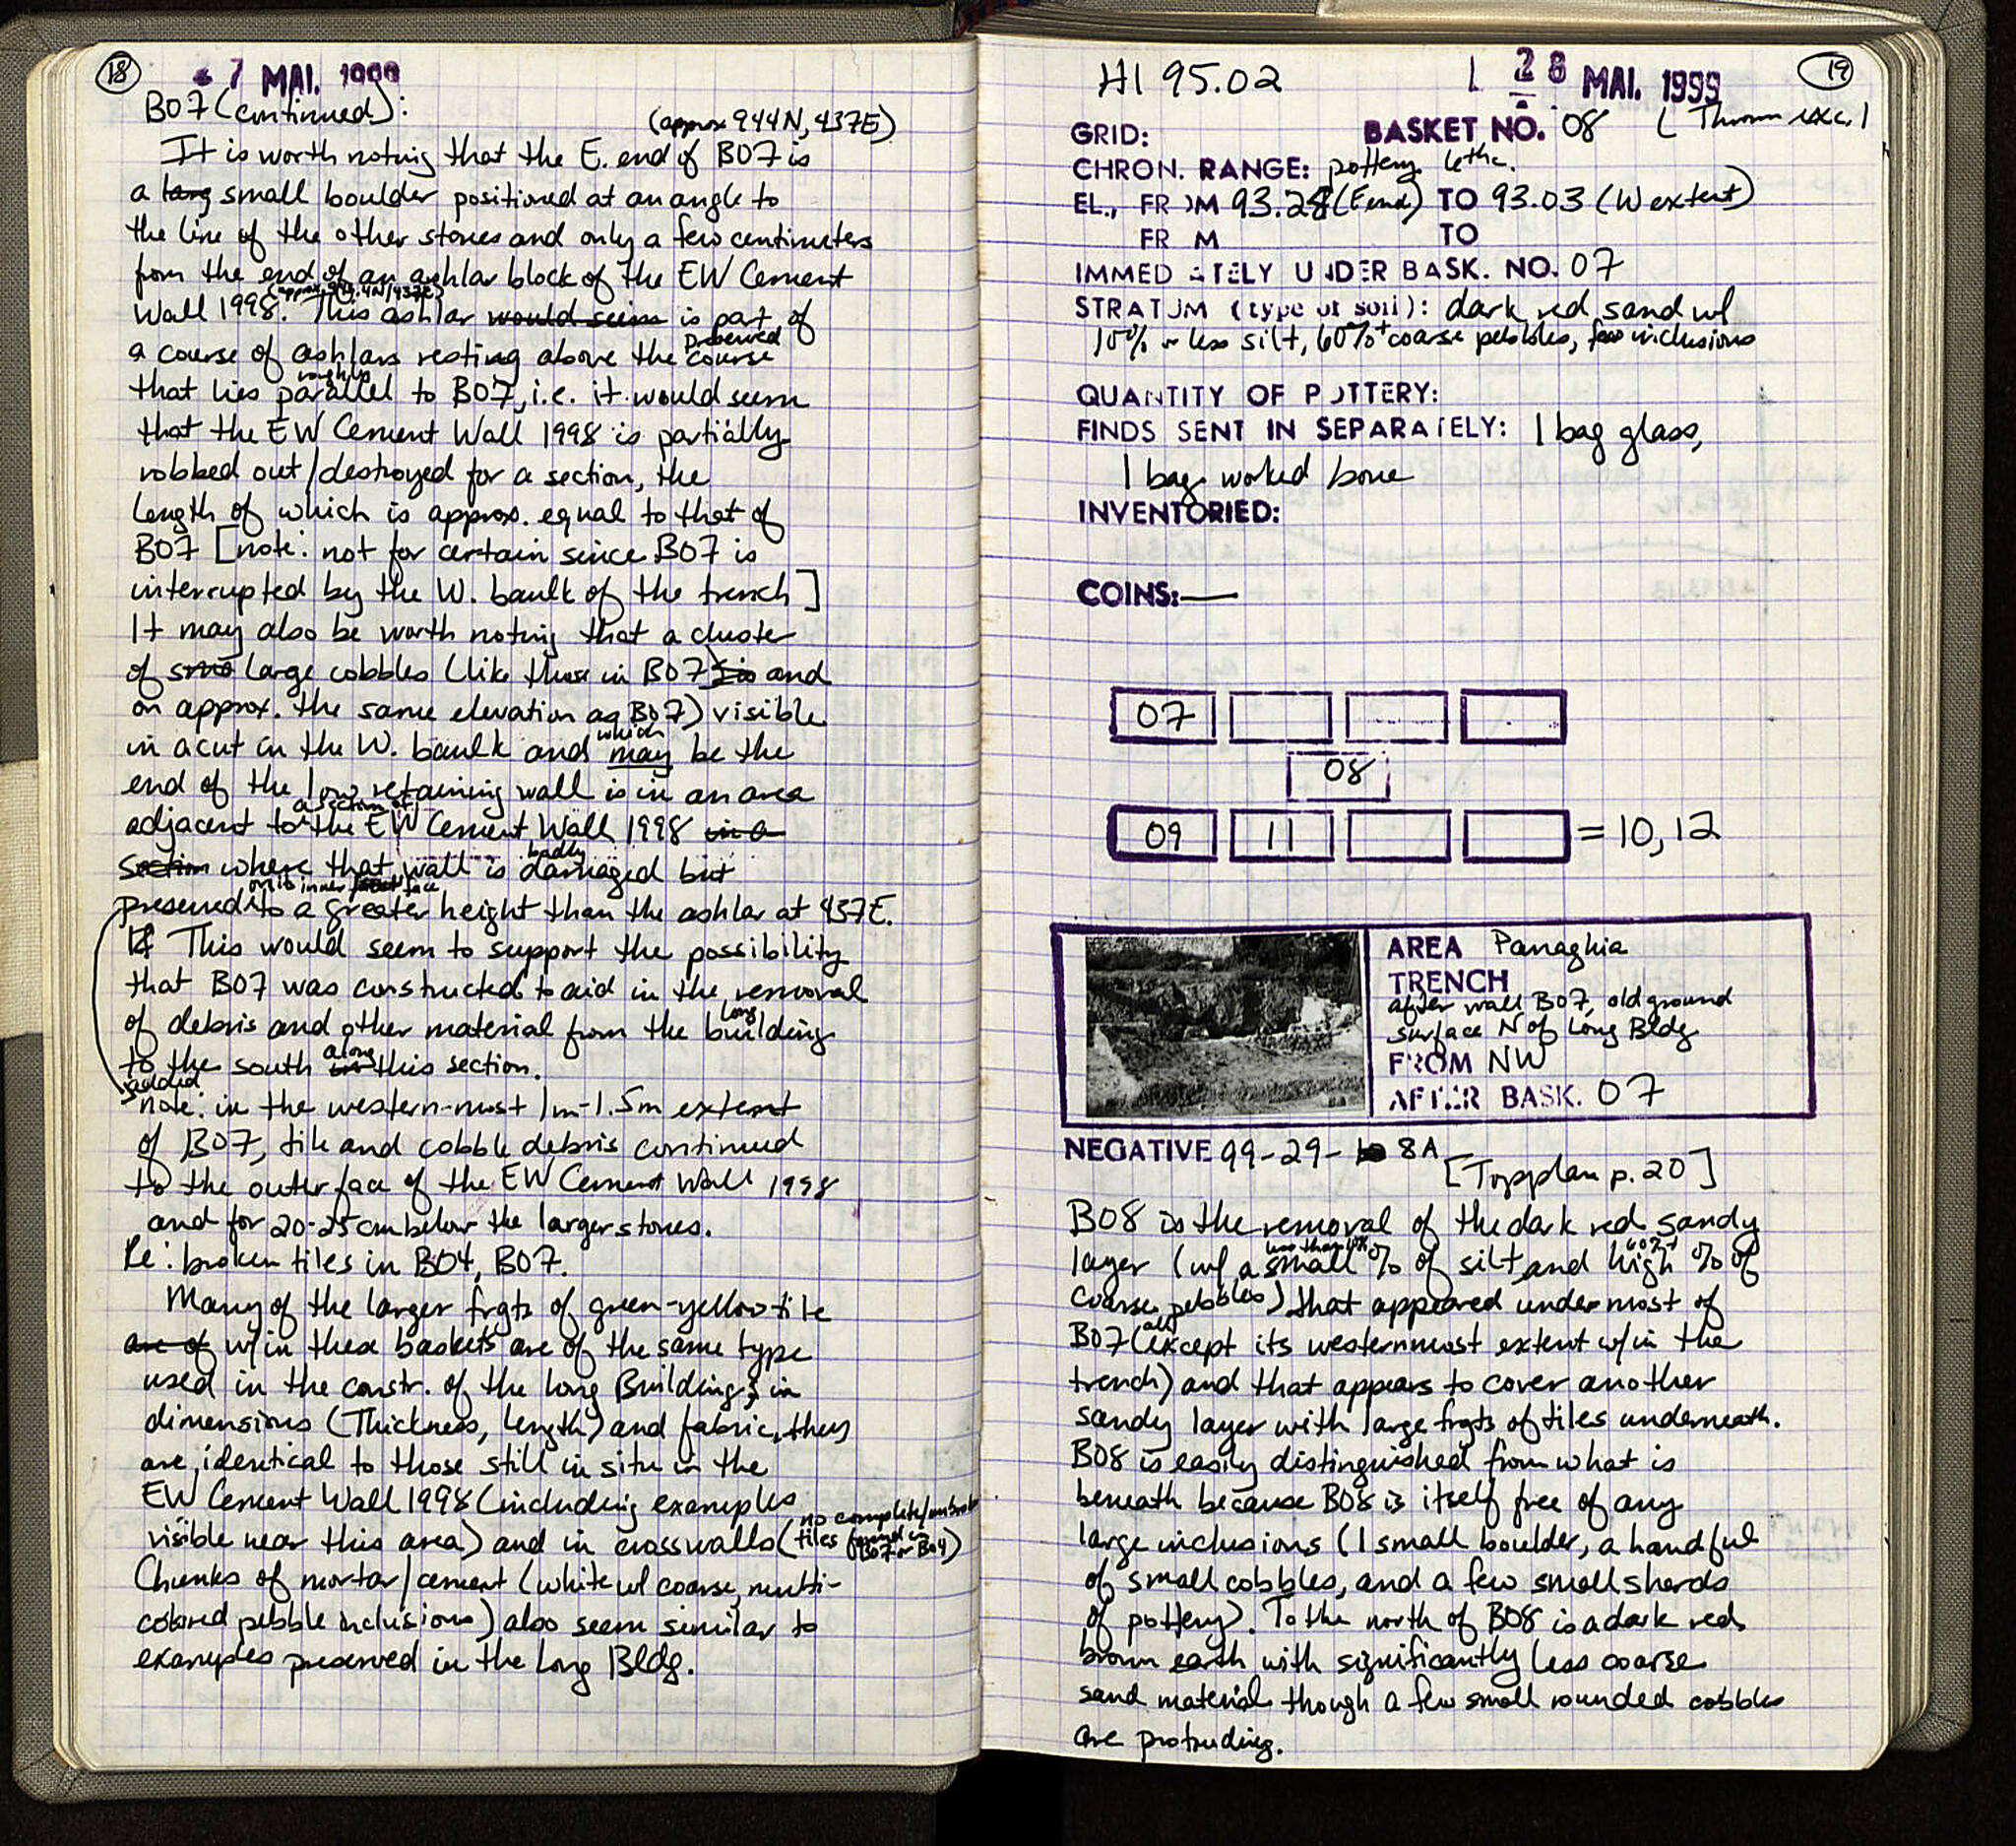 18
7 MAI. 1999
B07 (continued):
(approx 944N, 437E)
It is worth noting that the E. end of B07 is
a long small boulder positioned at an angle to
the line of the other stones and only a few centimeters
from the end of an ashlar block of the EW Cement
Wall 1998. This ashlar would seem is part of
a course of ashlars resting above the preserved course
that lies roughly parallel to B07, i.e. it would seem
that the EW Cement Wall 1998 is partially
robbed out/destroyed for a section, the
length of which is approx. equal to that of
B07 [note: not for certain since B07 is
interrupted by the W. baulk of the trench]
It may also be worth noting that a cluster
of large cobbles (like those in B07 and
on approx. the same elevation as B07) visible
in a cut in the W. baulk and which may be the
end of the low retaining wall is in an area
adjacent to a section of the EW Cement Wall 1998 in a
section where that wall is badly damaged but
preserved on its inner face to a greater height than the ashlar at 437E.
This would seem to support the possibility
that B07 was constructed to aid in the removal
of debris and other material from the long building
to the south along this section.
added
note: in the western-most 1m-1.5m extent
of B07, tile and cobble debris continued
to the outer face of the EW Cement Wall 1998
and for 20-25cm below the larger stones.
Re: broken tiles in B04, B07.
Many of the larger frgts of green-yellow tile
are of w/in these baskets are of the same type
used in the constr. of the long Building; in
dimensions (Thickness, length) and fabric, they
are identical to those still in situ in the
EW Cement Wall 1998 (including examples
visible near this area) and in crosswalls (no complete/unbroken tiles found in B07 or B04)
Chunks of mortar/cement (white w/ coarse, multi-
colored pebble inclusions) also seem similar to
examples preserved in the Long Bldg.
H1 95.02
28 MAI. 1999
19
GRID:
BASKET NO. 08
CHRON. RANGE: pottery 6thc.
EL., FR M 93.28 (E end) TO 93.03 (W extent)
FR M TO
IMMED ATELY U DER BASK. NO. 07
STRATUM (type of soil): dark red sand w/
10% or less silt, 60%+ coarse pebbles, few inclusions
QUANTITY OF POTTERY:
FINDS SENT IN SEPARATELY: 1 bag glass,
1 bag worked bone
INVENTORIED:
COINS: —
07
08
09 11 = 10, 12
AREA Panaghia
TRENCH
after wall B07, old ground
surface N of Long Bldg
FROM NW
AFTER BASK. 07
NEGATIVE 99-29- 8A
[Topplan p. 20]
B08 is the removal of the dark red sandy
layer (w/ a small less than 10% % of silt and high 60%+ % of
coarse pebbles) that appeared under most of
B07 (all except its westernmost extent w/in the
trench) and that appears to cover another
sandy layer with large frgts of tiles underneath.
B08 is easily distinguished from what is
beneath because B08 is itself free of any
large inclusions (1 small boulder, a handful
of small cobbles, and a few small sherds
of pottery). To the north of B08 is a dark red
brown earth with significantly less coarse
sand material though a few small rounded cobbles
are protruding.